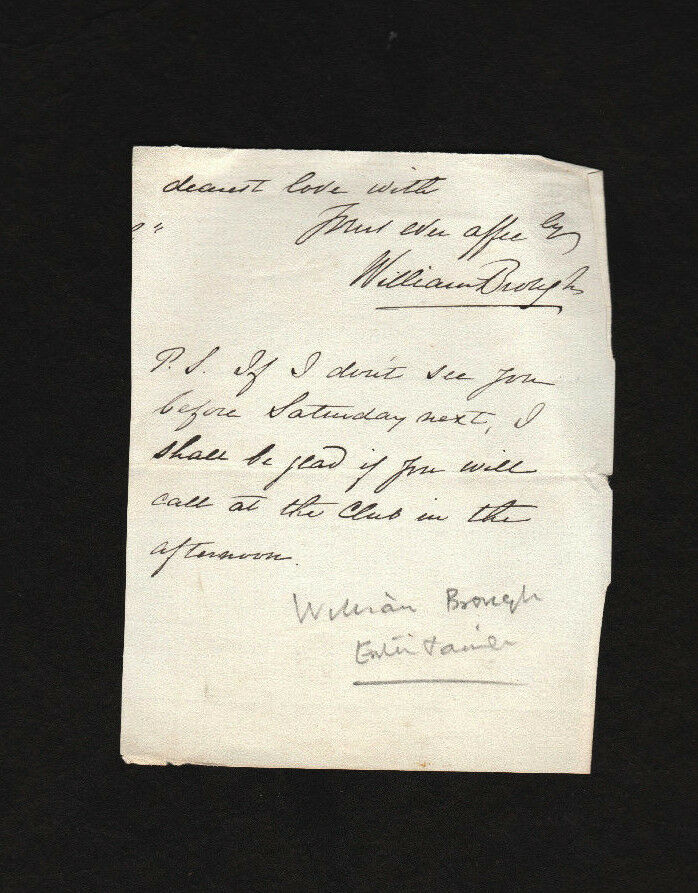 dearest love with
Yours ever affec ly
William Brough
P.S. If I don't see you
before Saturday next, I
shall be glad if you will
call at the Club in the
afternoon.
William Brough
Entertainer